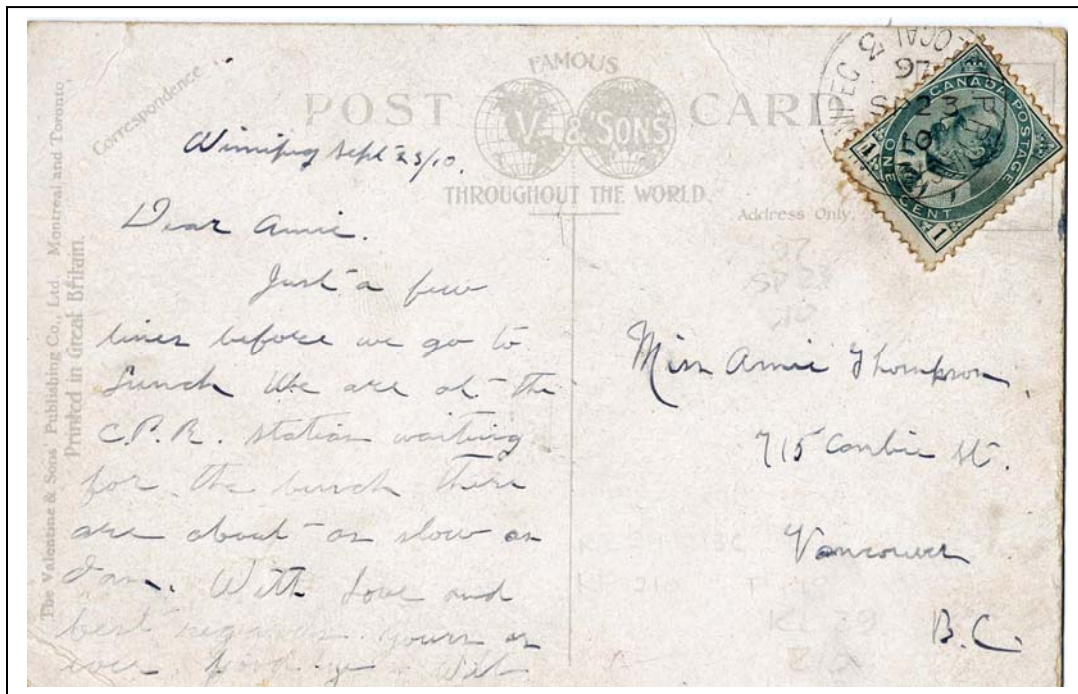 The Valentine & Sons Publishing Co., Ltd. Montreal and Toronto.
Printed in Great Britain.
Correspondence
FAMOUS
POST CARD
V. & SONS
THROUGHOUT THE WORLD.
Address Only.
CANADA POSTAGE
ONE CENT
1 1
SP 23
10
Winnipeg Sept 23/10.
Dear Annie.
Just a few
lines before we go to
Lunch We are at the
C.P.R. station waiting
for the bunch there
are about as slow as
I am. With Love and
best regards yours as
ever Will
Miss Annie Thompson,
715 Cambie St.
Vancouver
B.C.